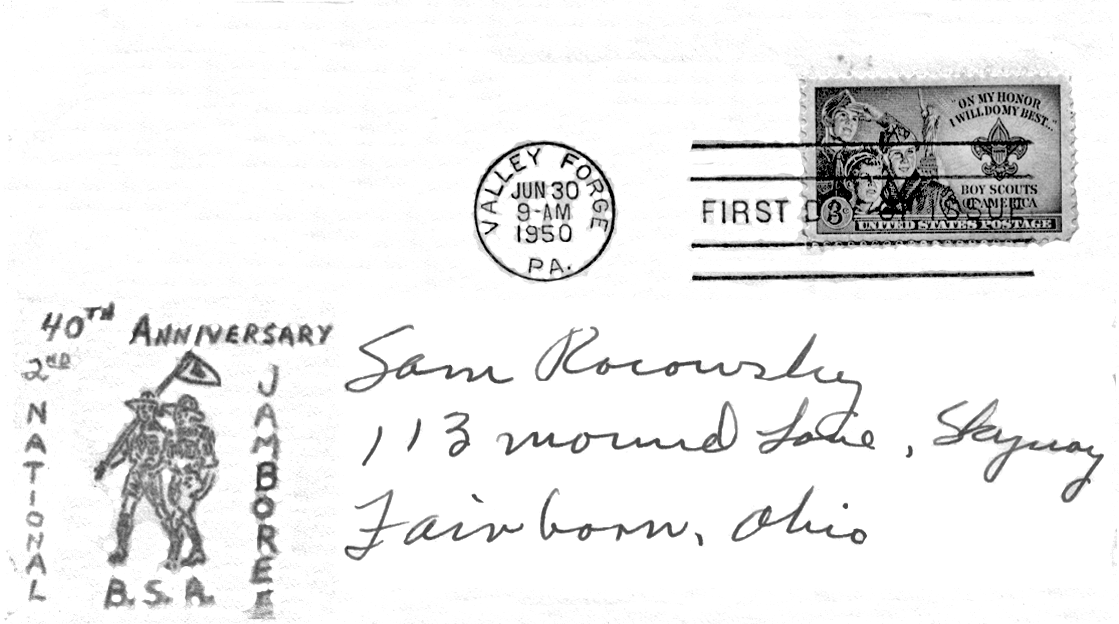 "ON MY HONOR
I WILL DO MY BEST..."
BOY SCOUTS
OF AMERICA
3¢
UNITED STATES POSTAGE
VALLEY FORGE
JUN 30
9-AM
1950
PA.
FIRST DAY OF ISSUE
40TH ANNIVERSARY
2ND NATIONAL
JAMBOREE
B.S.A.
Sam Rocowsky
113 Mound Lane, Skyway
Fairborn, Ohio